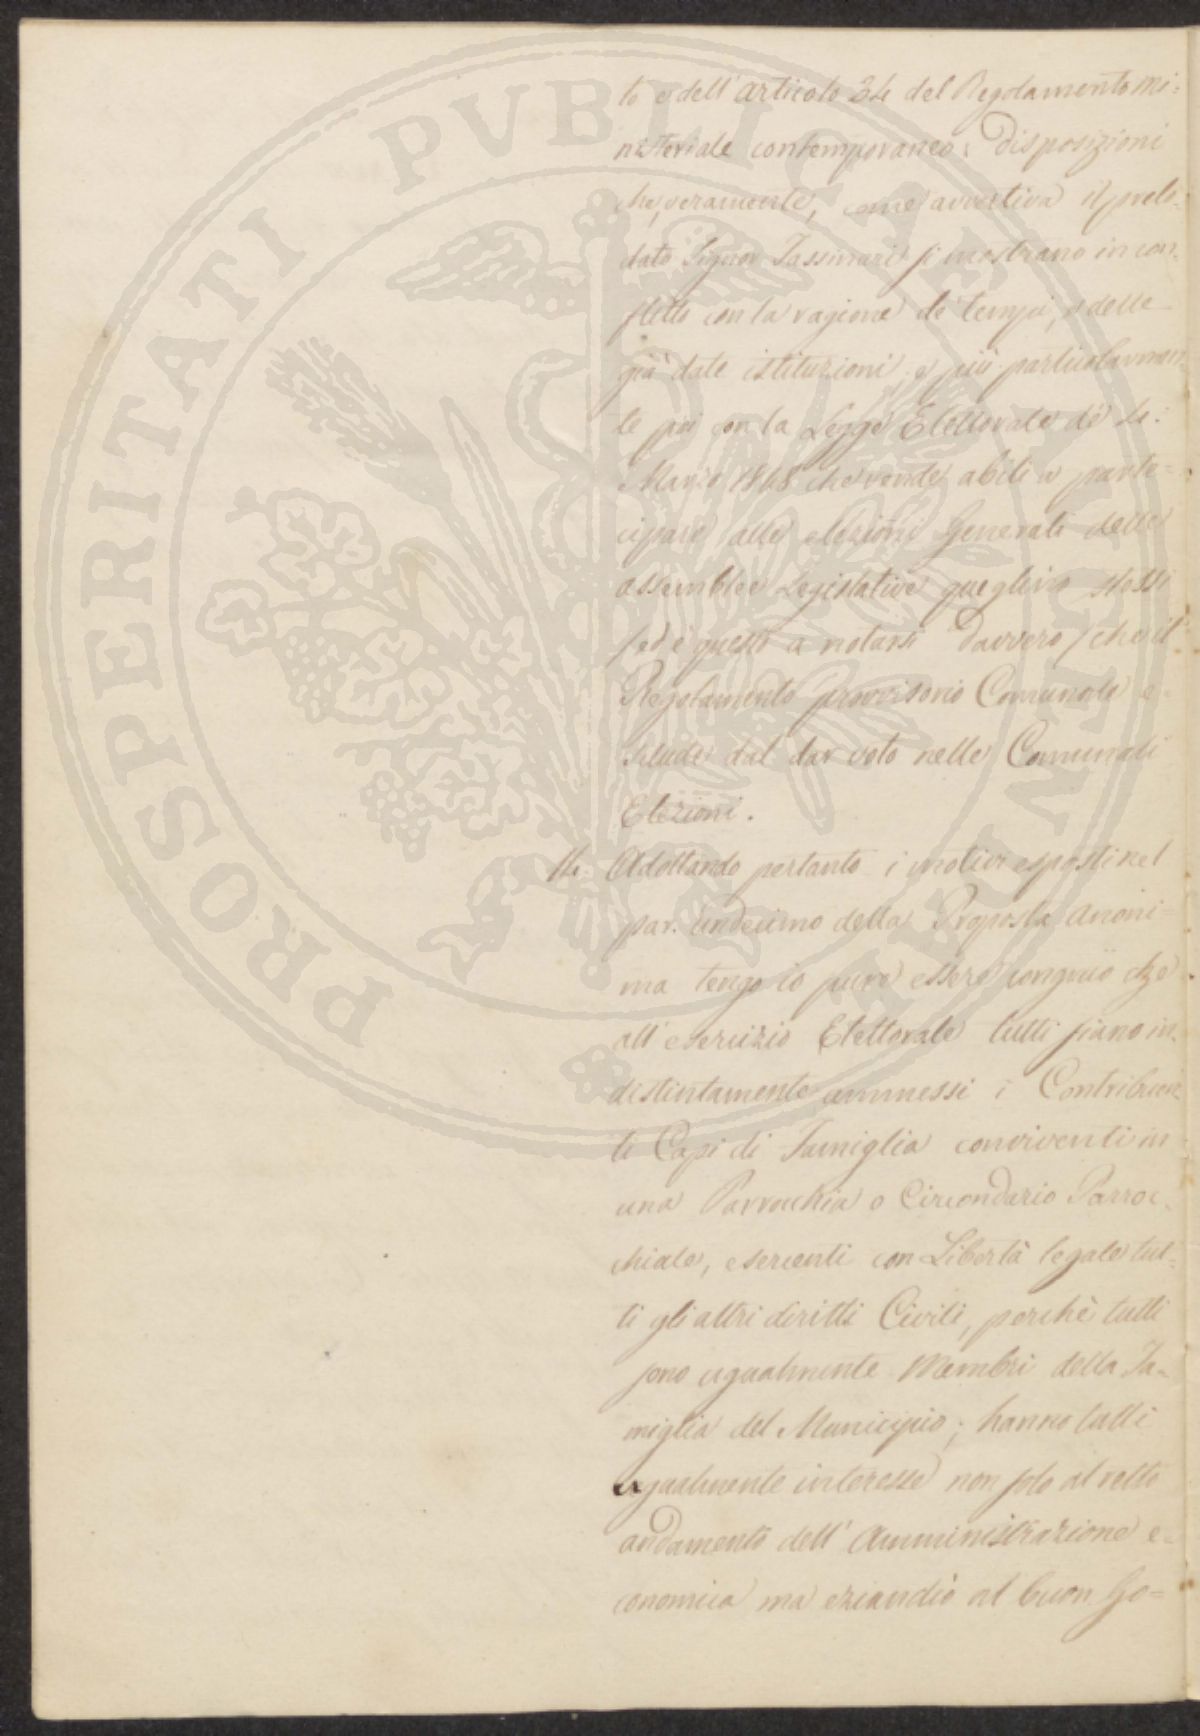 to e dell'articolo 34 del Regolamento Mi=
nisteriale contemporaneo: disposizioni
che, veramente, come avvertiva il prelo=
dato Signor Tassinari si mostrano in con=
flitto con la ragione de' tempi, e delle
già date istituzioni, e più particolarmen=
te poi con la Legge Elettorale de'
Marzo 1848 che rende abili a parte=
cipare alle elezioni Generali delle
assemblee Legislative quegli stessi
(ed è questo a notarsi davvero) che il
Regolamento provvisorio Comunale e=
sclude dal dar voto nelle Comunali
Elezioni.
14. Adottando pertanto i motivi esposti nel
par. undecimo della Proposta anoni=
ma tengo io pure essere congruo che
all'esercizio Elettorale tutti siano in=
distintamente ammessi i Contribuen=
ti Capi di Famiglia conviventi in
una Parrocchia o Circondario Parroc=
chiale, esercenti con Libertà legale tut=
ti gli altri diritti Civili, perchè tutti
sono ugualmente Membri della Fa=
miglia del Municipio; hanno tutti
ugualmente interesse non solo al retto
andamento dell'Amministrazione e=
conomica ma eziandio al buon Go=
PROSPERITATI PVBLICAE AVGENDAE